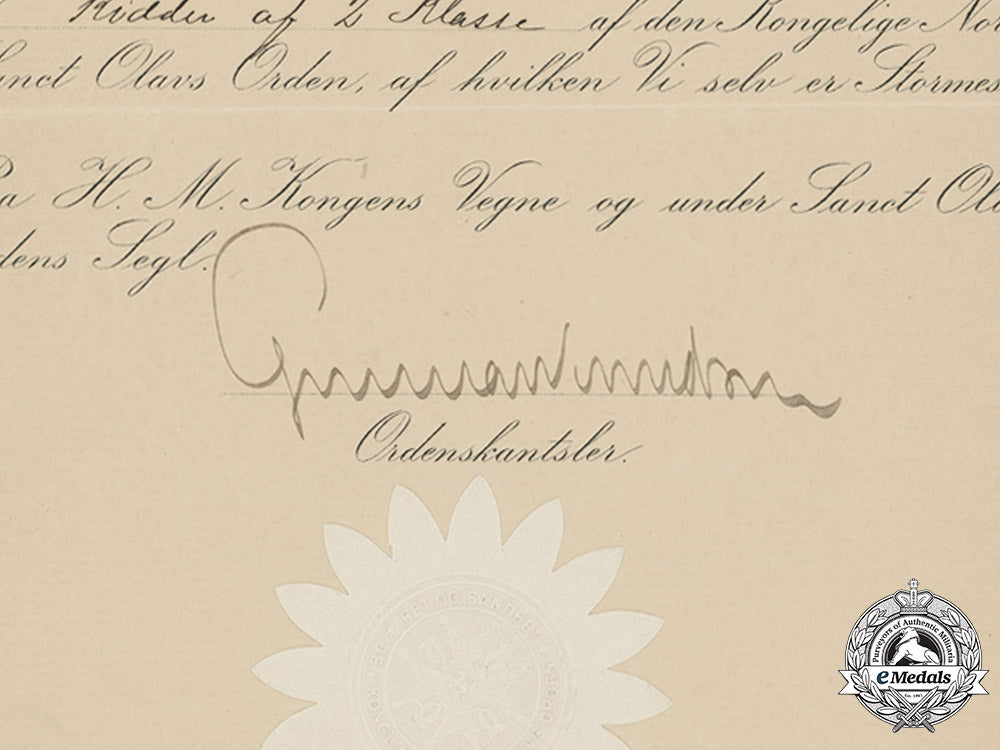 Ridder af 2 Klasse af den Kongelige Nor
anct Olavs Orden, af hvilken Vi selv er Stormes
Pa H. M. Kongens Vegne og under Sanct Ola
dens Segl.
Ordenskantsler.
RET OG SANDHED
Purveyors of Authentic Militaria
eMedals
Est. 1967